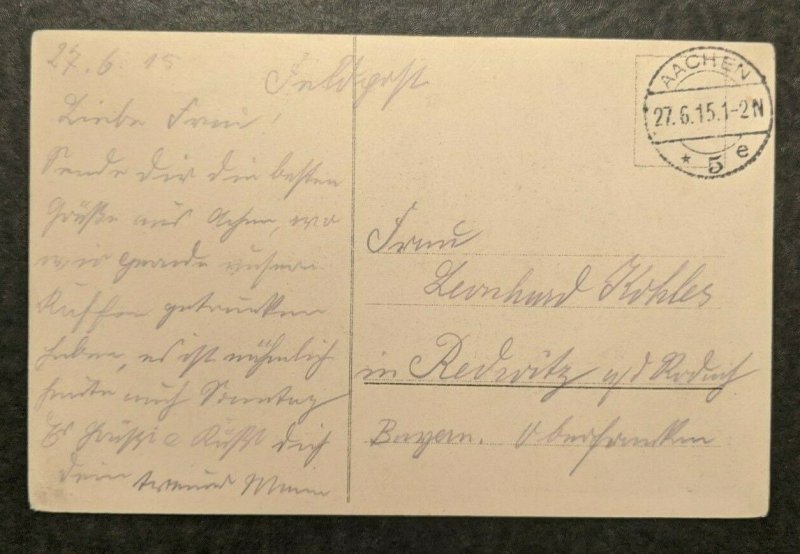 27.6.15
Feldpost
Liebe Frau!
Sende dir die besten
Grüße aus Achen, wo
wir gerade unsern
Kaffee getrunken
haben, es ist nähmlich
heute auch Sonntag
Es Grüßt e Küßt dich
dein treuer Mann
AACHEN
27.6.15.1-2N
* 5 e
Frau
Leonhard Kohles
in Redwitz a/d Rodach
Bayern. Oberfranken